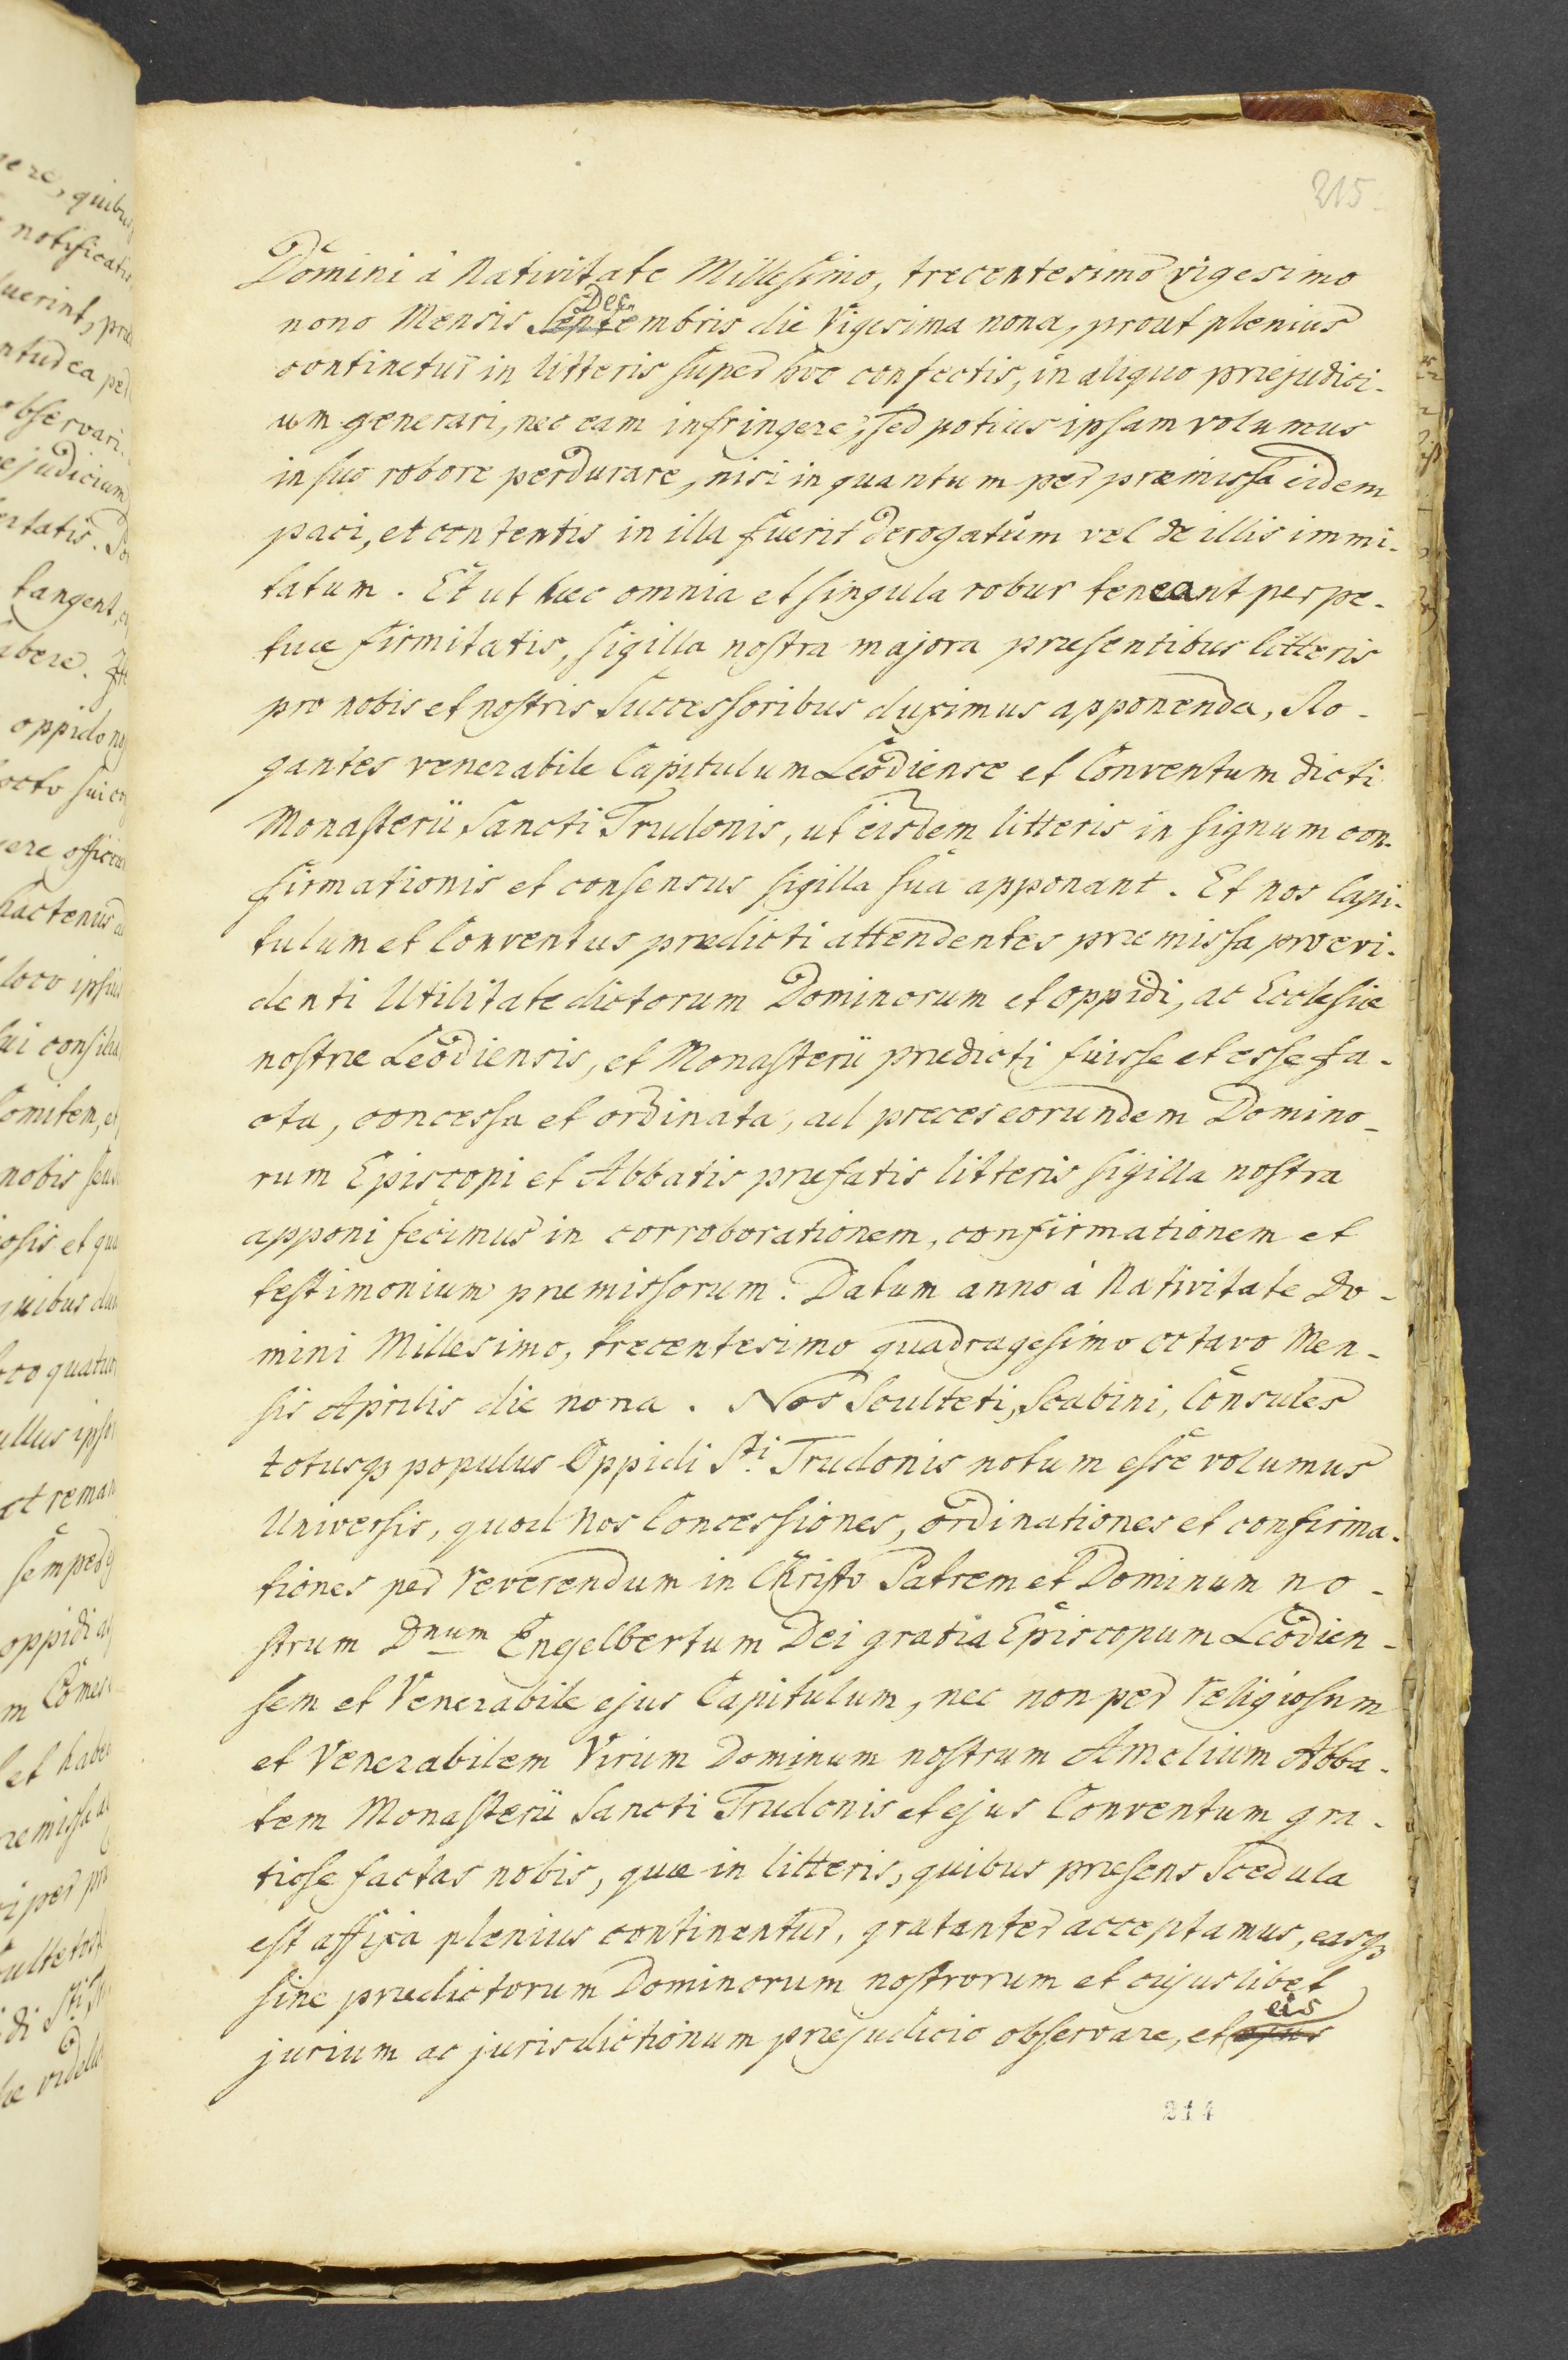 215.
Domini à Nativitate Millesimo, trecentesimo vigesimo
Dec
nono Mensis Septembris die Vigesima nona, prout plenius
continetur in litteris super hoc confectis, in aliquo præjudici-
um generari, nec eam infringere, sed potius ipsam volumus
in suo robore perdurare, nisi in quantum per præmissa eidem
paci, et contentis in illa fuerit derogatum vel de illis immi-
tatum. Et ut hæc omnia et singula robur teneant perpe-
tuæ firmitatis, sigilla nostra majora præsentibus litteris
pro nobis et nostris Successoribus duximus apponenda, Ro-
gantes venerabile Capitulum Leodiense et Conventum dicti
Monasterii Sancti Trudonis, ut eisdem litteris in signum con-
firmationis et consensus sigilla sua apponant. Et nos Capi-
tulum et Conventus prædicti attendentes præmissa pro evi-
denti Utilitate dictorum Dominorum et oppidi, ac Ecclesiæ
nostræ Leodiensis, et Monasterii prædicti fuisse et esse fa-
cta, concessa et ordinata, ad preces eorundem Domino-
rum Episcopi et Abbatis præfatis litteris sigilla nostra
apponi fecimus in corroborationem, confirmationem et
testimonium præmissorum. Datum anno à Nativitate Do-
mini Millesimo, trecentesimo quadragesimo octavo Men-
sis Aprilis die nona. Nos Sculteti, Scabini, Consules
totusq3 populus Oppidi Sti. Trudonis notum esse volumus
Universis, quod nos Concessiones, ordinationes et confirma-
tiones per reverendum in Christo Patrem et Dominum no-
strum Dnum Engelbertum Dei gratia Episcopum Leodien-
sem et Venerabile ejus Capitulum, nec non per religiosum
et Venerabilem Virum Dominum nostrum Amelium Abba-
tem Monasterii Sancti Trudonis et ejus Conventum gra-
tiose factas nobis, quæ in litteris, quibus præsens Scedula
est affixa plenius continentur, gratanter acceptamus, easq3
sine prædictorum Dominorum nostrorum et cujuslibet
eis
jurium ac jurisdictionum præjudicio observare, et ejus
214